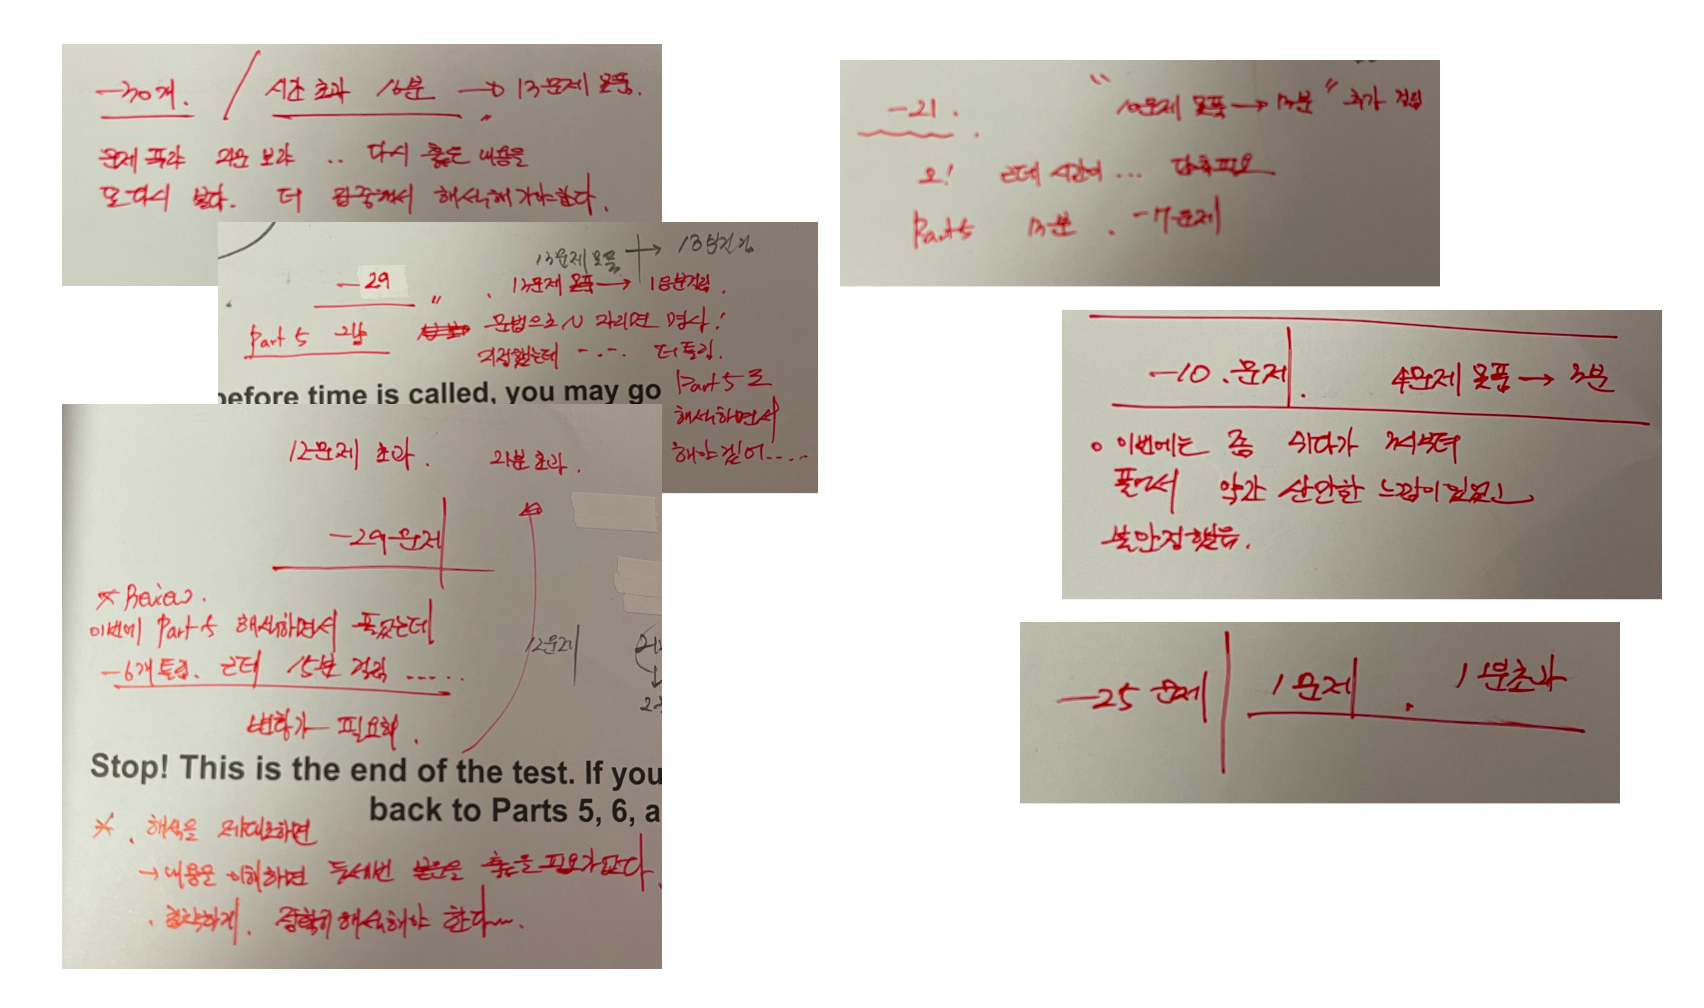 -30개. / 시간 초과 16분 → 13문제 못품.
문제 풀랴 지문 보랴 .. 다시 훑은 내용을
또 다시 본다. 더 집중해서 해석해 가야한다.
13문제 못품 → 18분걸림
-29
" . 13문제 못품 → 18분걸림.
Part 5 문법으로 N 자리면 명사!
지정했는데 -.-. 더 틀림.
Part 5도
해석하면서
해야겠어.....
before time is called, you may go
12문제 초과. 21분 초과.
-29문제
* Review.
이번에 Part 5 해석하면서 풀었는데
-6개 틀림. 근데 15분 걸림 ......
변화가 필요해.
12문제
Stop! This is the end of the test. If you
back to Parts 5, 6, a
* . 해석을 제대로하면
→ 내용을 이해하면 두세번 본문을 훑을 필요가없다.
. 침착하게. 정확히 해석해야 한다~.
-21.
" 10문제 못품 → 13분 " 추가 걸림
오! 근데 시간이 ... 단축필요
Part 5 13분. -7문제
-10.문제 . 4문제 못품 → 3분
이번에는 좀 쉬다가 저녁부터
풀어서 약간 산만한 느낌이 있었고
불안정했음.
-25 문제 1문제 . 1분초과